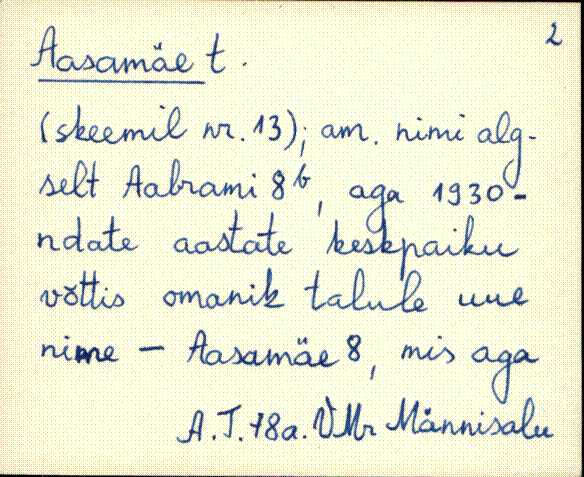 2
Aasamäe t.
(skeemil nr. 13); am. nimi alg-
selt Aabrami 8b, aga 1930-
ndate aastate keskpaiku
võttis omanik talule uue
nime – Aasamäe 8, mis aga
A.T. 78a. VMr Männisalu